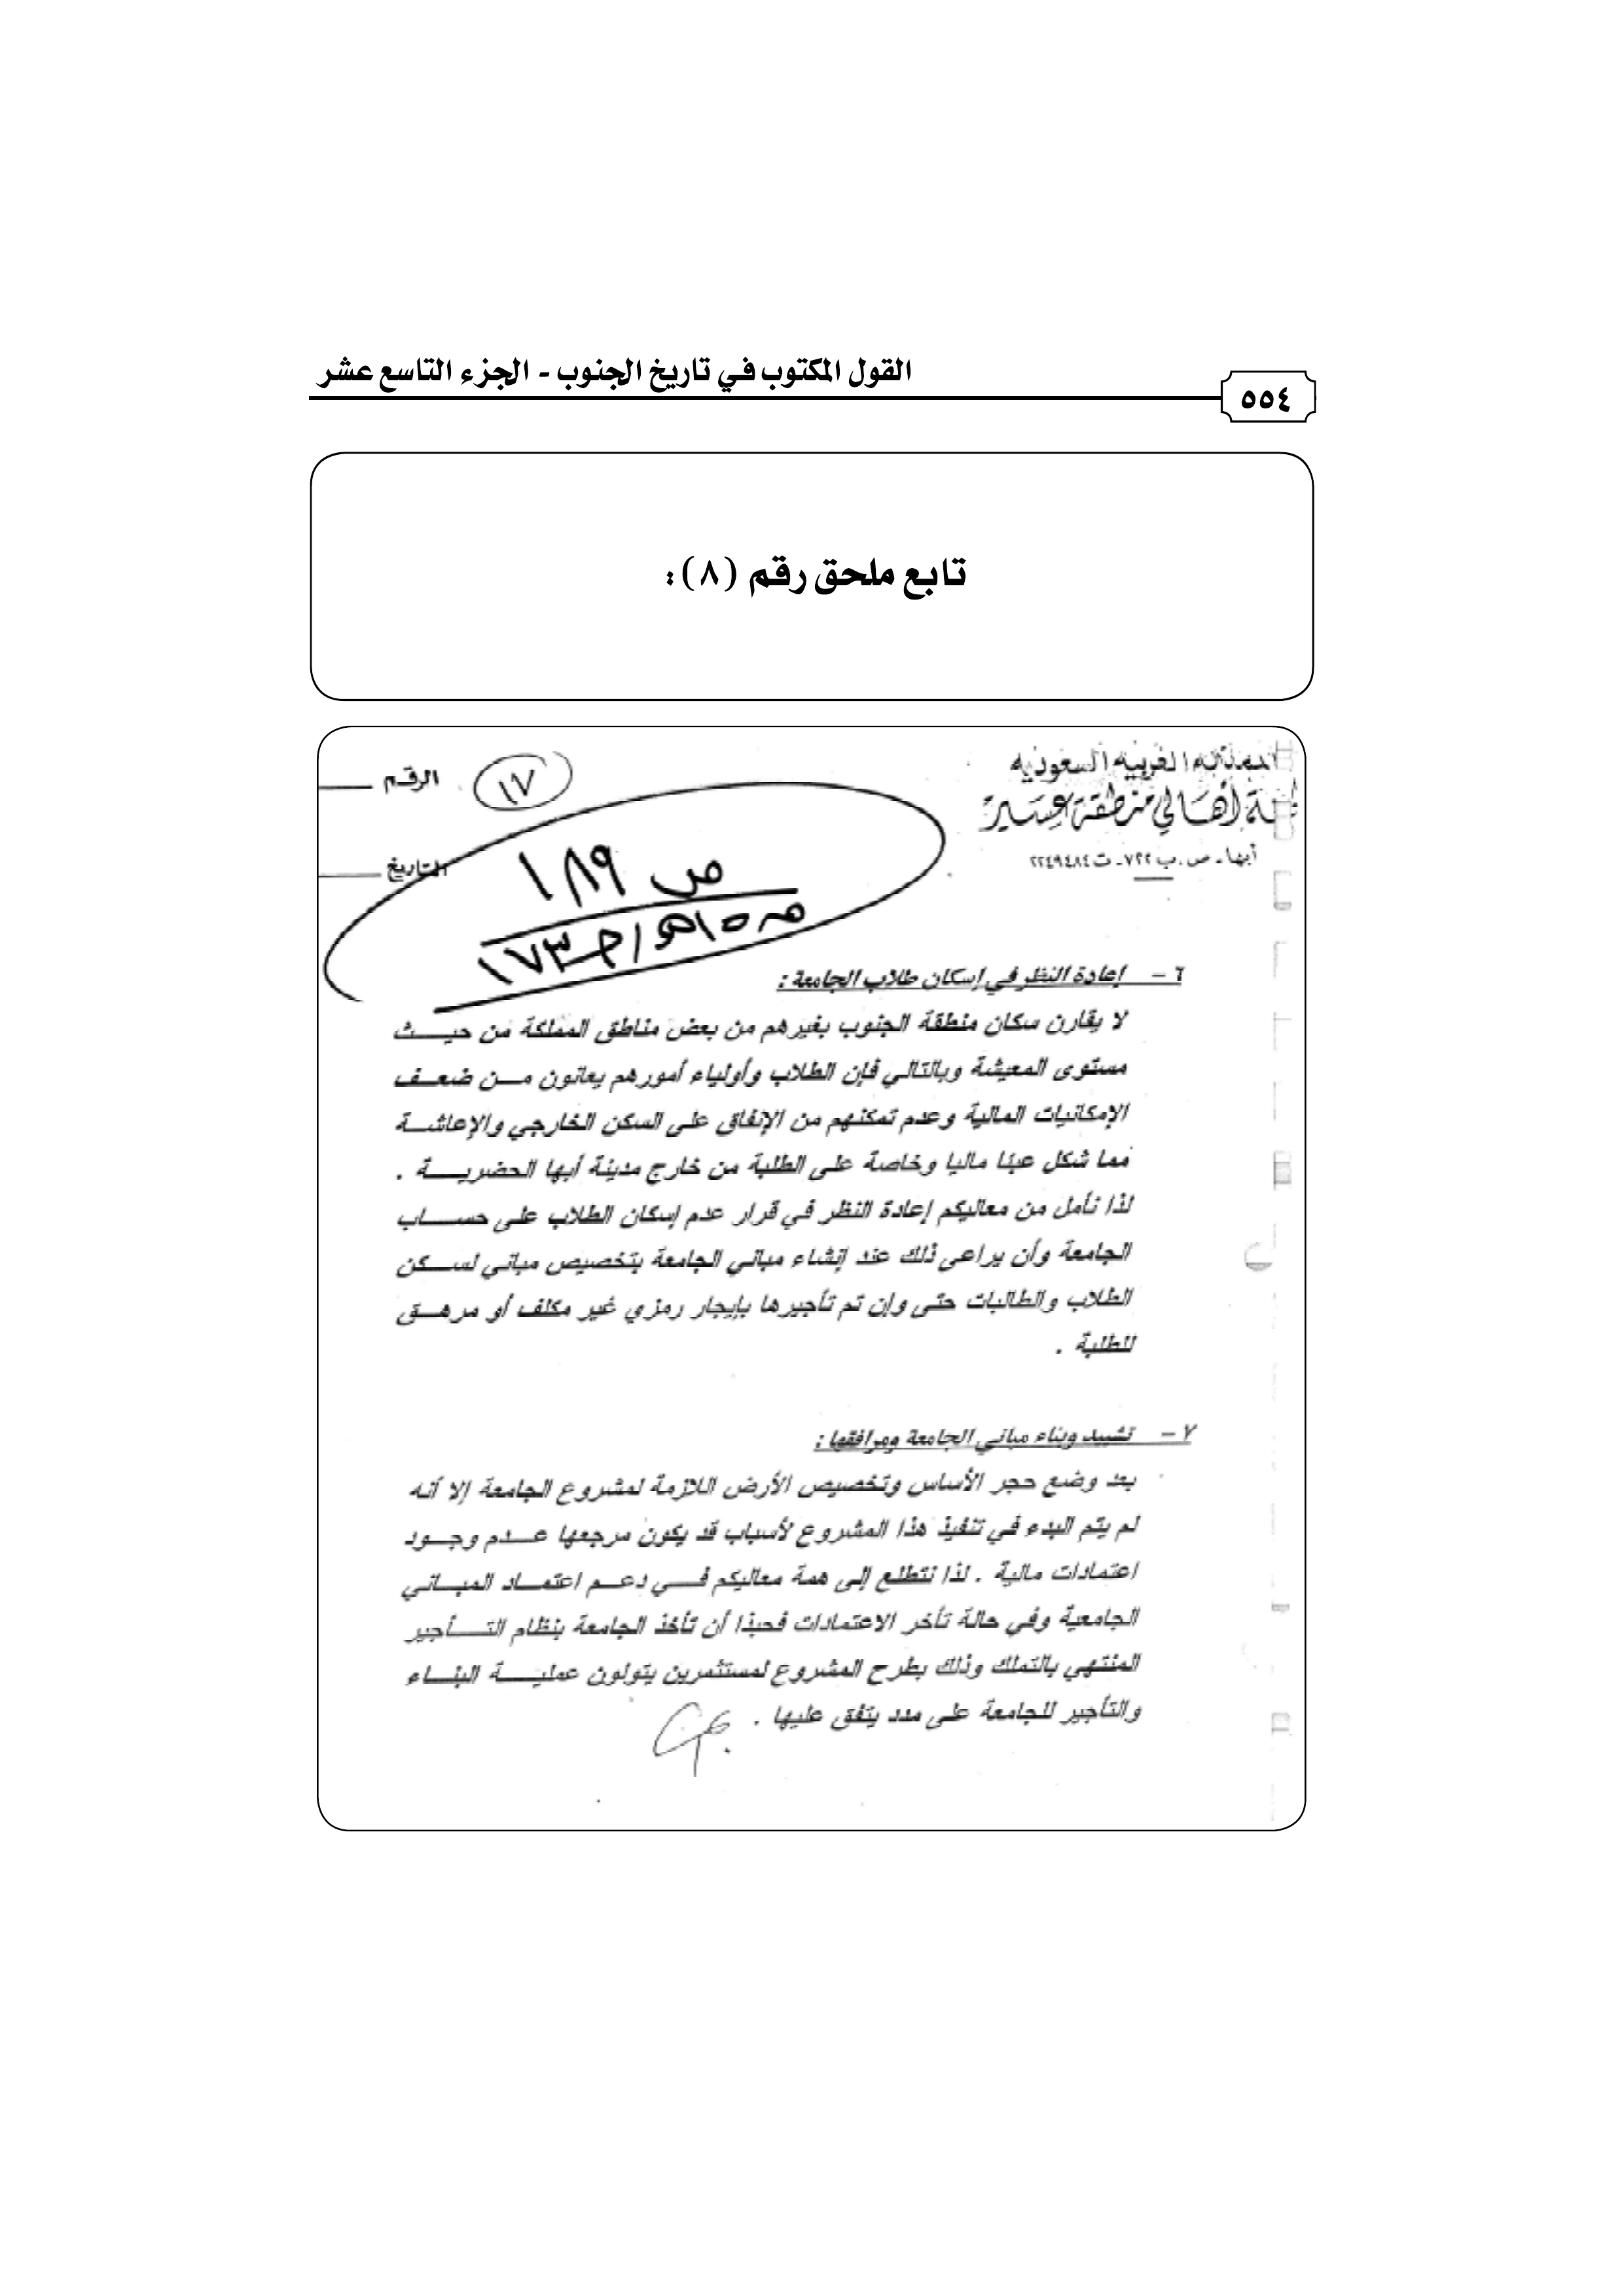 القول المكتوب في تاريخ الجنوب - الجزء التاسع عشر
٥٥٤
تابع ملحق رقم (٨):
المملكة العربية السعودية
لجنة أهالي منطقة عسير
أبها - ص.ب ٧٢٢ - ت ٢٢٤٩٤٨٤
الرقم
١٧
التاريخ
ص ١٨٩
٦ - إعادة النظر في إسكان طلاب الجامعة :
لا يقارن سكان منطقة الجنوب بغيرهم من بعض مناطق المملكة من حيث
مستوى المعيشة وبالتالي فإن الطلاب وأولياء أمورهم يعانون من ضعف
الإمكانيات المالية وعدم تمكنهم من الإنفاق على السكن الخارجي والإعاشة
مما شكل عبئا ماليا وخاصة على الطلبة من خارج مدينة أبها الحضرية .
لذا نأمل من معاليكم إعادة النظر في قرار عدم إسكان الطلاب على حساب
الجامعة وأن يراعى ذلك عند إنشاء مباني الجامعة بتخصيص مباني لسكن
الطلاب والطالبات حتى وإن تم تأجيرها بإيجار رمزي غير مكلف أو مرهق
للطلبة .
٧ - تشييد وبناء مباني الجامعة ومرافقها :
بعد وضع حجر الأساس وتخصيص الأرض اللازمة لمشروع الجامعة إلا أنه
لم يتم البدء في تنفيذ هذا المشروع لأسباب قد يكون مرجعها عدم وجود
اعتمادات مالية . لذا نتطلع إلى همة معاليكم في دعم اعتماد المباني
الجامعية وفي حالة تأخر الاعتمادات فحبذا أن تأخذ الجامعة بنظام التأجير
المنتهي بالتملك وذلك بطرح المشروع لمستثمرين يتولون عملية البناء
والتأجير للجامعة على مدد يتفق عليها .